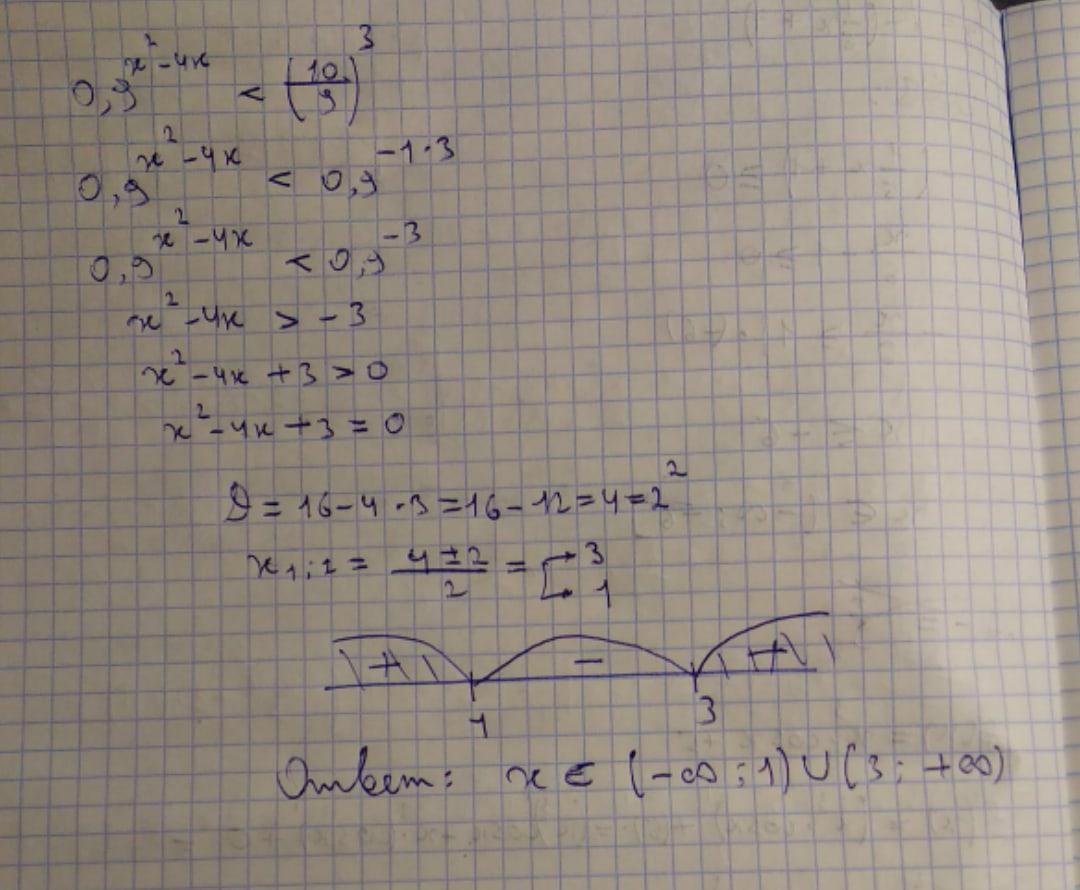 0,9^(x²-4x) < (10/9)³
0,9^(x²-4x) < 0,9^(-1·3)
0,9^(x²-4x) < 0,9^(-3)
x²-4x > -3
x²-4x+3>0
x²-4x+3=0
D=16-4·3=16-12=4=2²
x₁;₂ = (4±2)/2 = 3
1
+ − +
1 3
Ответ: x ∈ (-∞;1)∪(3;+∞)